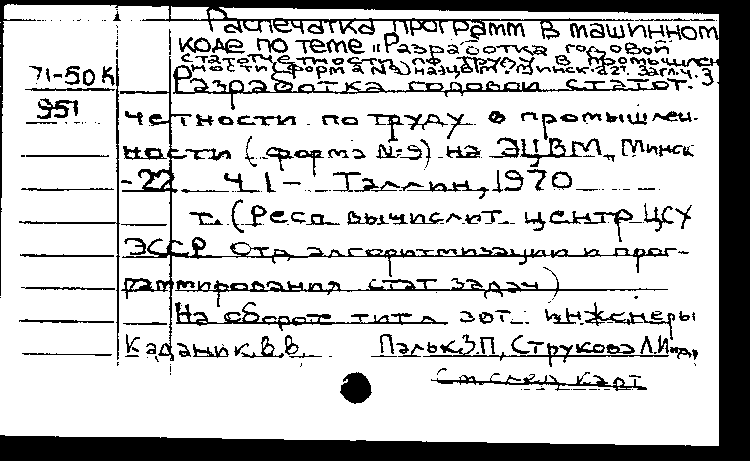 Распечатка программ в машинном
коде по теме „Разработка годовой
статотчетности по труду в промышлен
ности (форма №9) на ЭЦВМ „Минск-22". Загл. ч. 3.
71-50к Разработка годовой статот.
951 четности по труду в промышлен-
ности (форма №9) на ЭЦВМ „Минск
-22. Ч 1 - Таллин, 1970
т. (Респ вычислит. центр ЦСУ
ЭССР Отд алгоритмизации и прог-
раммирования стат задач)
На обороте тит л авт. инженеры
Каданик В.В. Пальк З.П, Струкова Л.И
См. след карт